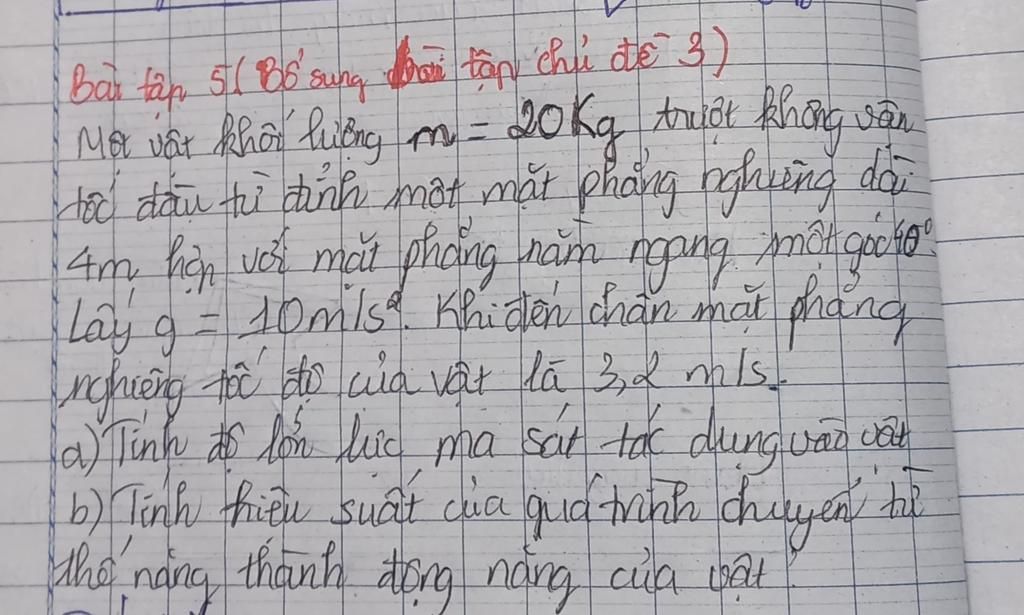 Bài tập 5 (Bổ sung bài tập chủ đề 3)
Một vật khối lượng m = 20Kg trượt không vận
tốc đầu từ đỉnh một mặt phẳng nghiêng dài
4m hợp với mặt phẳng nằm ngang một góc 40°.
Lấy g = 10m/s². Khi đến chân mặt phẳng
nghiêng tốc độ của vật là 3,2 m/s.
a) Tính độ lớn lực ma sát tác dụng vào vật
b) Tính hiệu suất của quá trình chuyển từ
thế năng thành động năng của vật